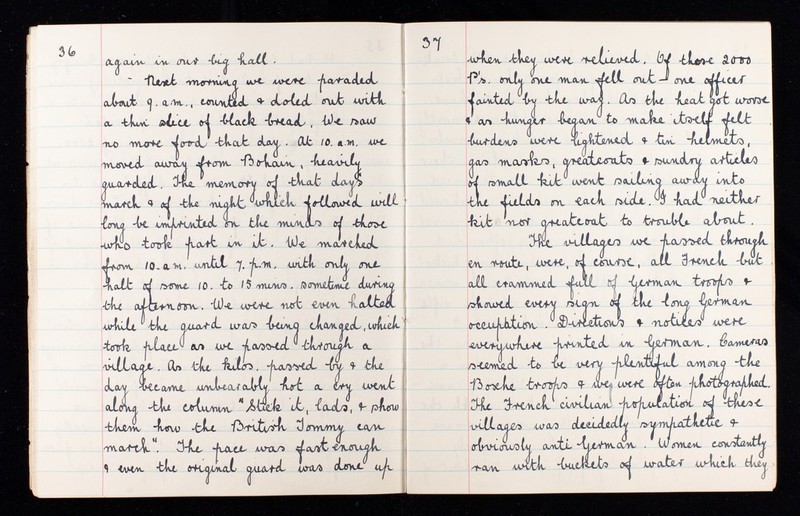 36
again in our big hall.
- Next morning we were paraded
about 9. a.m., counted & doled out with
a thin slice of black bread. We saw
no more food that day. At 10. a.m. we
moved away from Bohain, heavily
guarded. The memory of that days
march & of the night which followed will
long be imprinted on the minds of those
who took part in it. We marched
from 10. a.m. until 7. p.m. with only one
halt of some 10. to 15 mins. sometime during
the afternoon. We were not even halted
while the guard was being changed, which
took place as we passed through a
village. As the kilos. passed by & the
day became unbearably hot a cry went
along the column "Stick it, lads, & show
them how the British Tommy can
march". The pace was fast enough
& even the original guard was done up
37
when they were relieved. Of these 2000
P's. only one man fell out - one officer
fainted by the way. As the heat got worse
& as hunger began to make itself felt
burdens were lightened & tin helmets,
gas masks, greatcoats & sundry articles
of small kit went sailing away into
the fields on each side. I had neither
kit nor greatcoat to trouble about.
The villages we passed through
en route, were, of course, all French but
all crammed full of German troops &
showed every sign of the long German
occupation. Directions & notices were
everywhere printed in German. Cameras
seemed to be very plentiful among the
Bosche troops & we were often photographed.
The French civilian population of these
villages was decidedly sympathetic &
obviously anti-German. Women constantly
ran with buckets of water which they